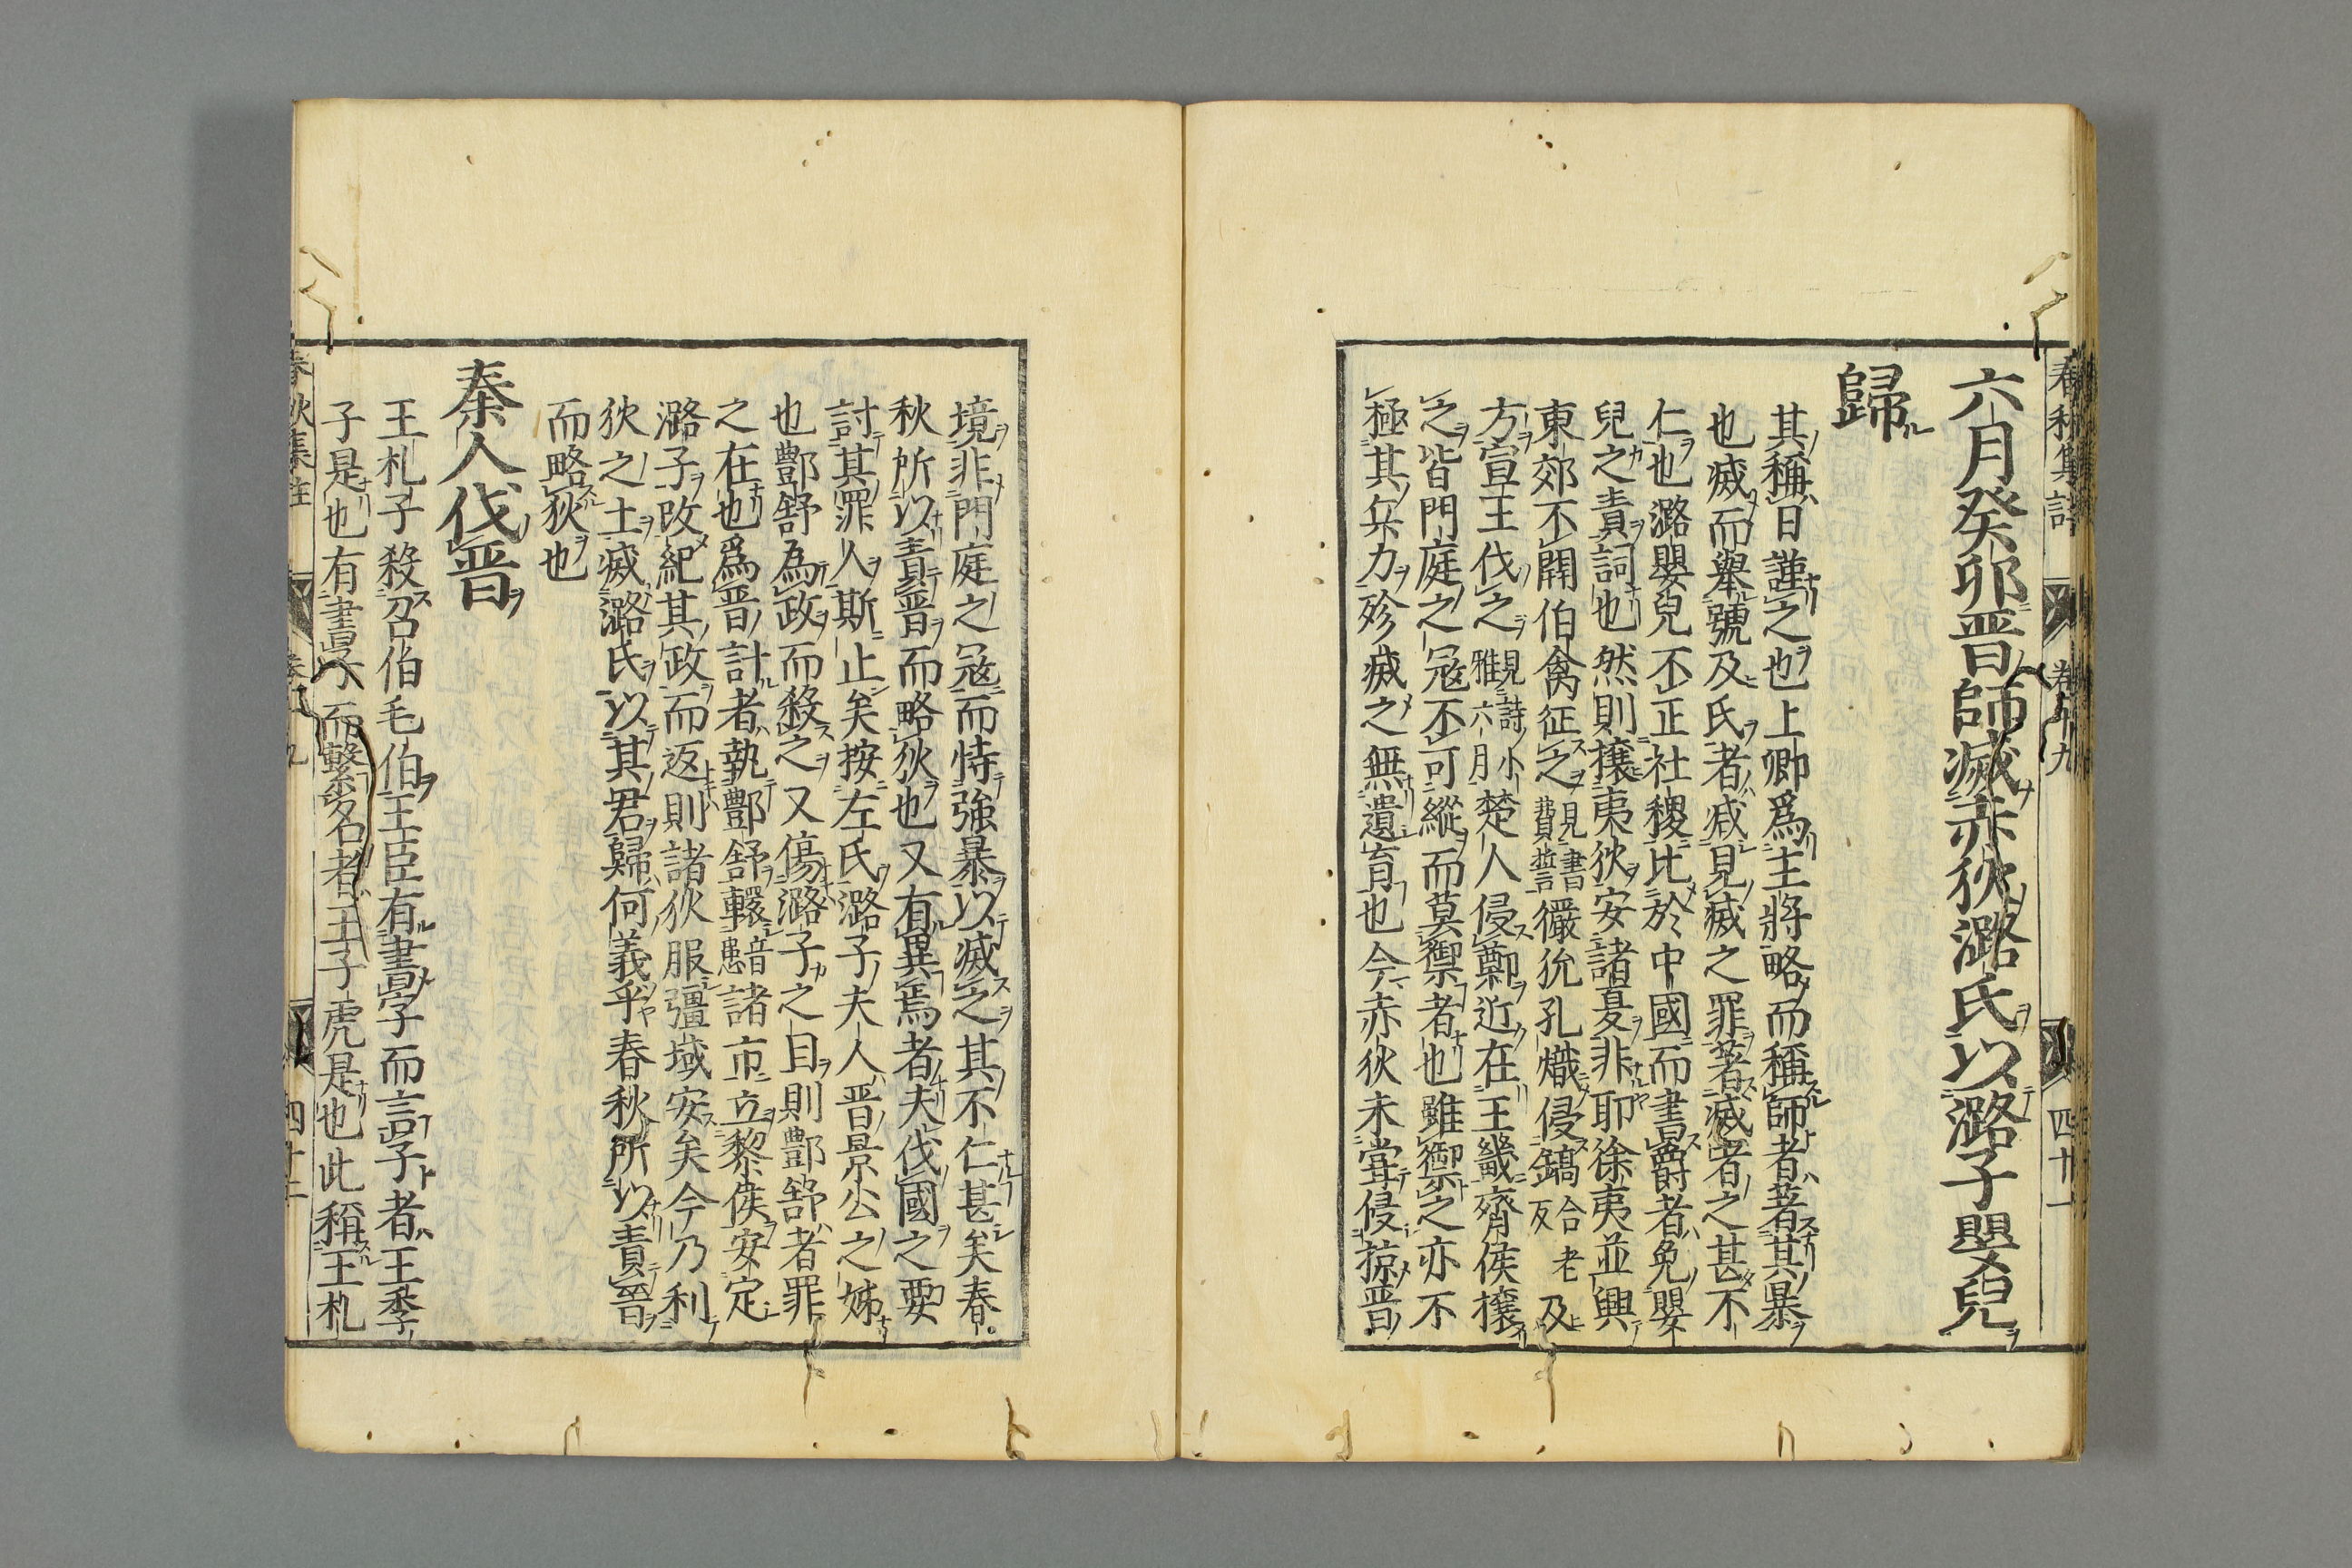 六月癸卯晋師滅赤狄潞氏以潞子嬰兒
歸
其稱日謹之也上卿爲主將略而稱師者著其暴
也滅而舉號及氏者減見滅之罪著滅者之甚不
仁也潞嬰兒不正社稷比於中國而書爵者免嬰
兒之責詞也然則攘夷狄安諸夏非耶徐夷並興
東郊不開伯禽征之見書費誓玁狁孔熾侵鎬合老反及
方宣王伐之見詩小雅六月楚人侵鄭近在王畿齊侯攘
之皆門庭之冦不可縱而莫禦者也雖禦之亦不
極其兵力殄滅之無遺育也今赤狄未甞侵掠晋
境非門庭之冦而恃強暴以滅之其不仁甚矣春
秋所以責晋而略狄也又有異焉者夫伐國之要
討其罪人斯止矣按左氏潞子夫人晋景公之姊
也酆舒為政而殺之又傷潞子之目則酆舒者罪
之在也爲晋計者執酆舒轘音患諸市立黎侯安定
潞子改紀其政而返則諸狄服疆域安矣今乃利
狄之土滅潞氏以其君歸何義乎春秋所以責晋
而略狄也
秦人伐晋
王札子殺召伯毛伯王臣有書字而言子者王季
子是也有書子而繫名者王子虎是也此稱王札
春秋集註 卷十九 四十一